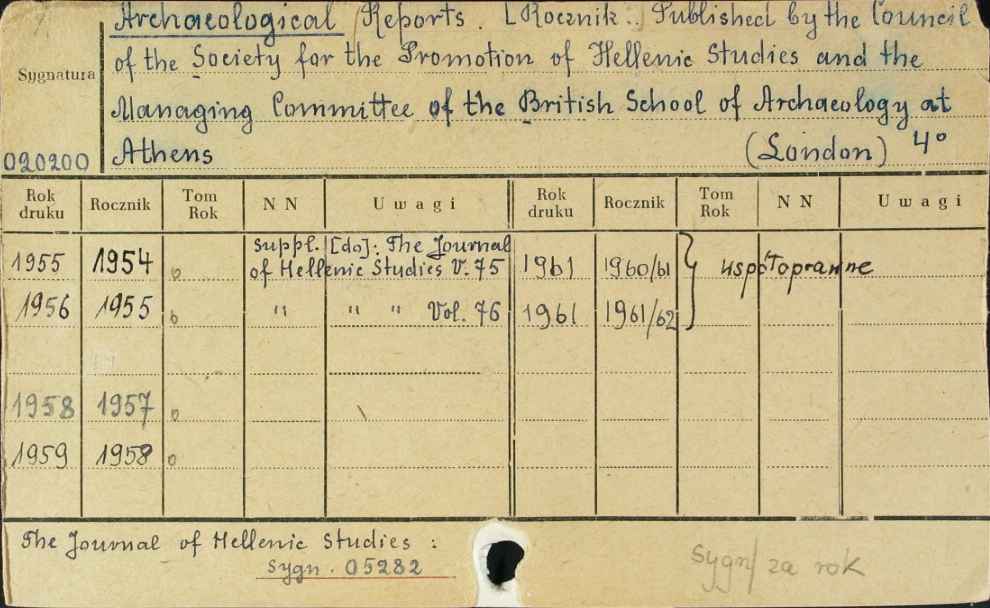 Archaeological Reports. [Rocznik.. Published by the Council
of the Society for the Promotion of Hellenic Studies and the
Sygnatura
Managing Committee of the British School of Archaeology at
020200 Athens (London) 4°
Rok druku Rocznik Tom Rok N N Uwagi Rok druku Rocznik Tom Rok N N Uwagi
suppl. [do]: The Journal
1955 1954 o of Hellenic Studies V. 75 1961 1960/61 } współoprawne
1956 1955 o " " " Vol. 76 1961 1961/62
1958 1957 o
1959 1958 o
The Journal of Hellenic Studies :
Sygn. 05282
sygn/ za rok